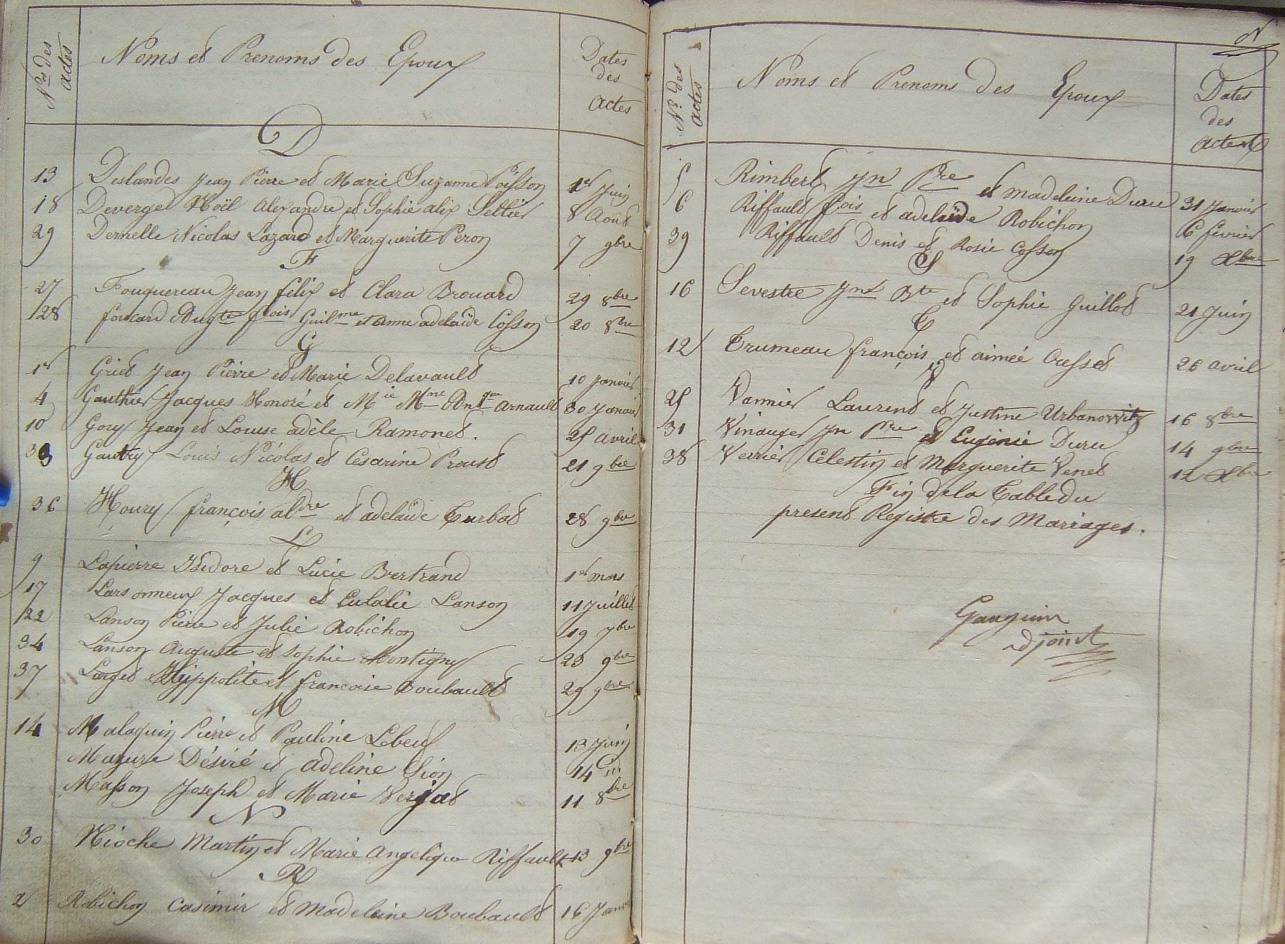 Nos des actes
Noms et Prenoms des Epoux
Dates
des
actes
D
13 Deslandes Jean Pierre et Marie Suzanne Poisson 1er Juin
18 Deverge Noël Alexandre et Sophie alix Seltier 8 Aout
29 Dernelle Nicolas Lazare et Marguerite Peron 7 gbre
F
27 Fouquereau Jean félix et Clara Brouard 29 8bre
128 foucard Augte fois Guilme et anne adelaïde Cosson 20 8bre
G
1er Griet Jean Pierre et Marie Delavault 10 Janvier
4 Gauthier Jacques Honoré et Mie Mne arnault 30 Janvier
10 Gory Jean et Louise adèle Ramonet. 25 avril
33 Gautry Louis Nicolas et Césarine Proust 21 gbre
H
36 Houry françois aldre et adelaïde Turbat 28 gbre
L
9 Lapierre Isidore et Lucie Bertrand 1er mars
17 Larsonneux Jacques et Eulalie Lanson 11 Juillet
22 Lanson Pierre et Julie Robichon 19 7bre
34 Lanson Auguste et Sophie Montigny 23 gbre
37 Larget Hyppolite et francoise Boubault 29 gbre
M
14 Malaquin Pierre et Pauline Lebeuf 13 Juin
Mazure Désiré et adeline Sion 14 id
Masson Joseph et Marie Verjat 11 8bre
N
30 Nioche Martin et Marie Angelique Riffault 13 gbre
R
2 Robichon Casimir et Madeleine Boubault 16 Janv
Nos des actes
Noms et Prenoms des Epoux
Dates
des
actes
5 Rimbert Jn Pre et madeleine Duru 31 Janvier
6 Riffault fois et adelaïde Robichon 6 février
39 Riffault Denis et Rosie Cosson 19 Xbre
S
16 Sevestre Jn Bte et Sophie Guillot 21 Juin
T
12 Trumeau françois et aimée Cresset 26 avril
V
25 Vannier Laurent et Justine Urbanowitz 16 8bre
31 Vinauger Jn Pire et Eugénie Duru 14 gbre
38 Verrier Célestin et Marguerite Venet 12 Xbre
Fin de la Table du
present Registre des Mariages.
Gauguin
adjoint